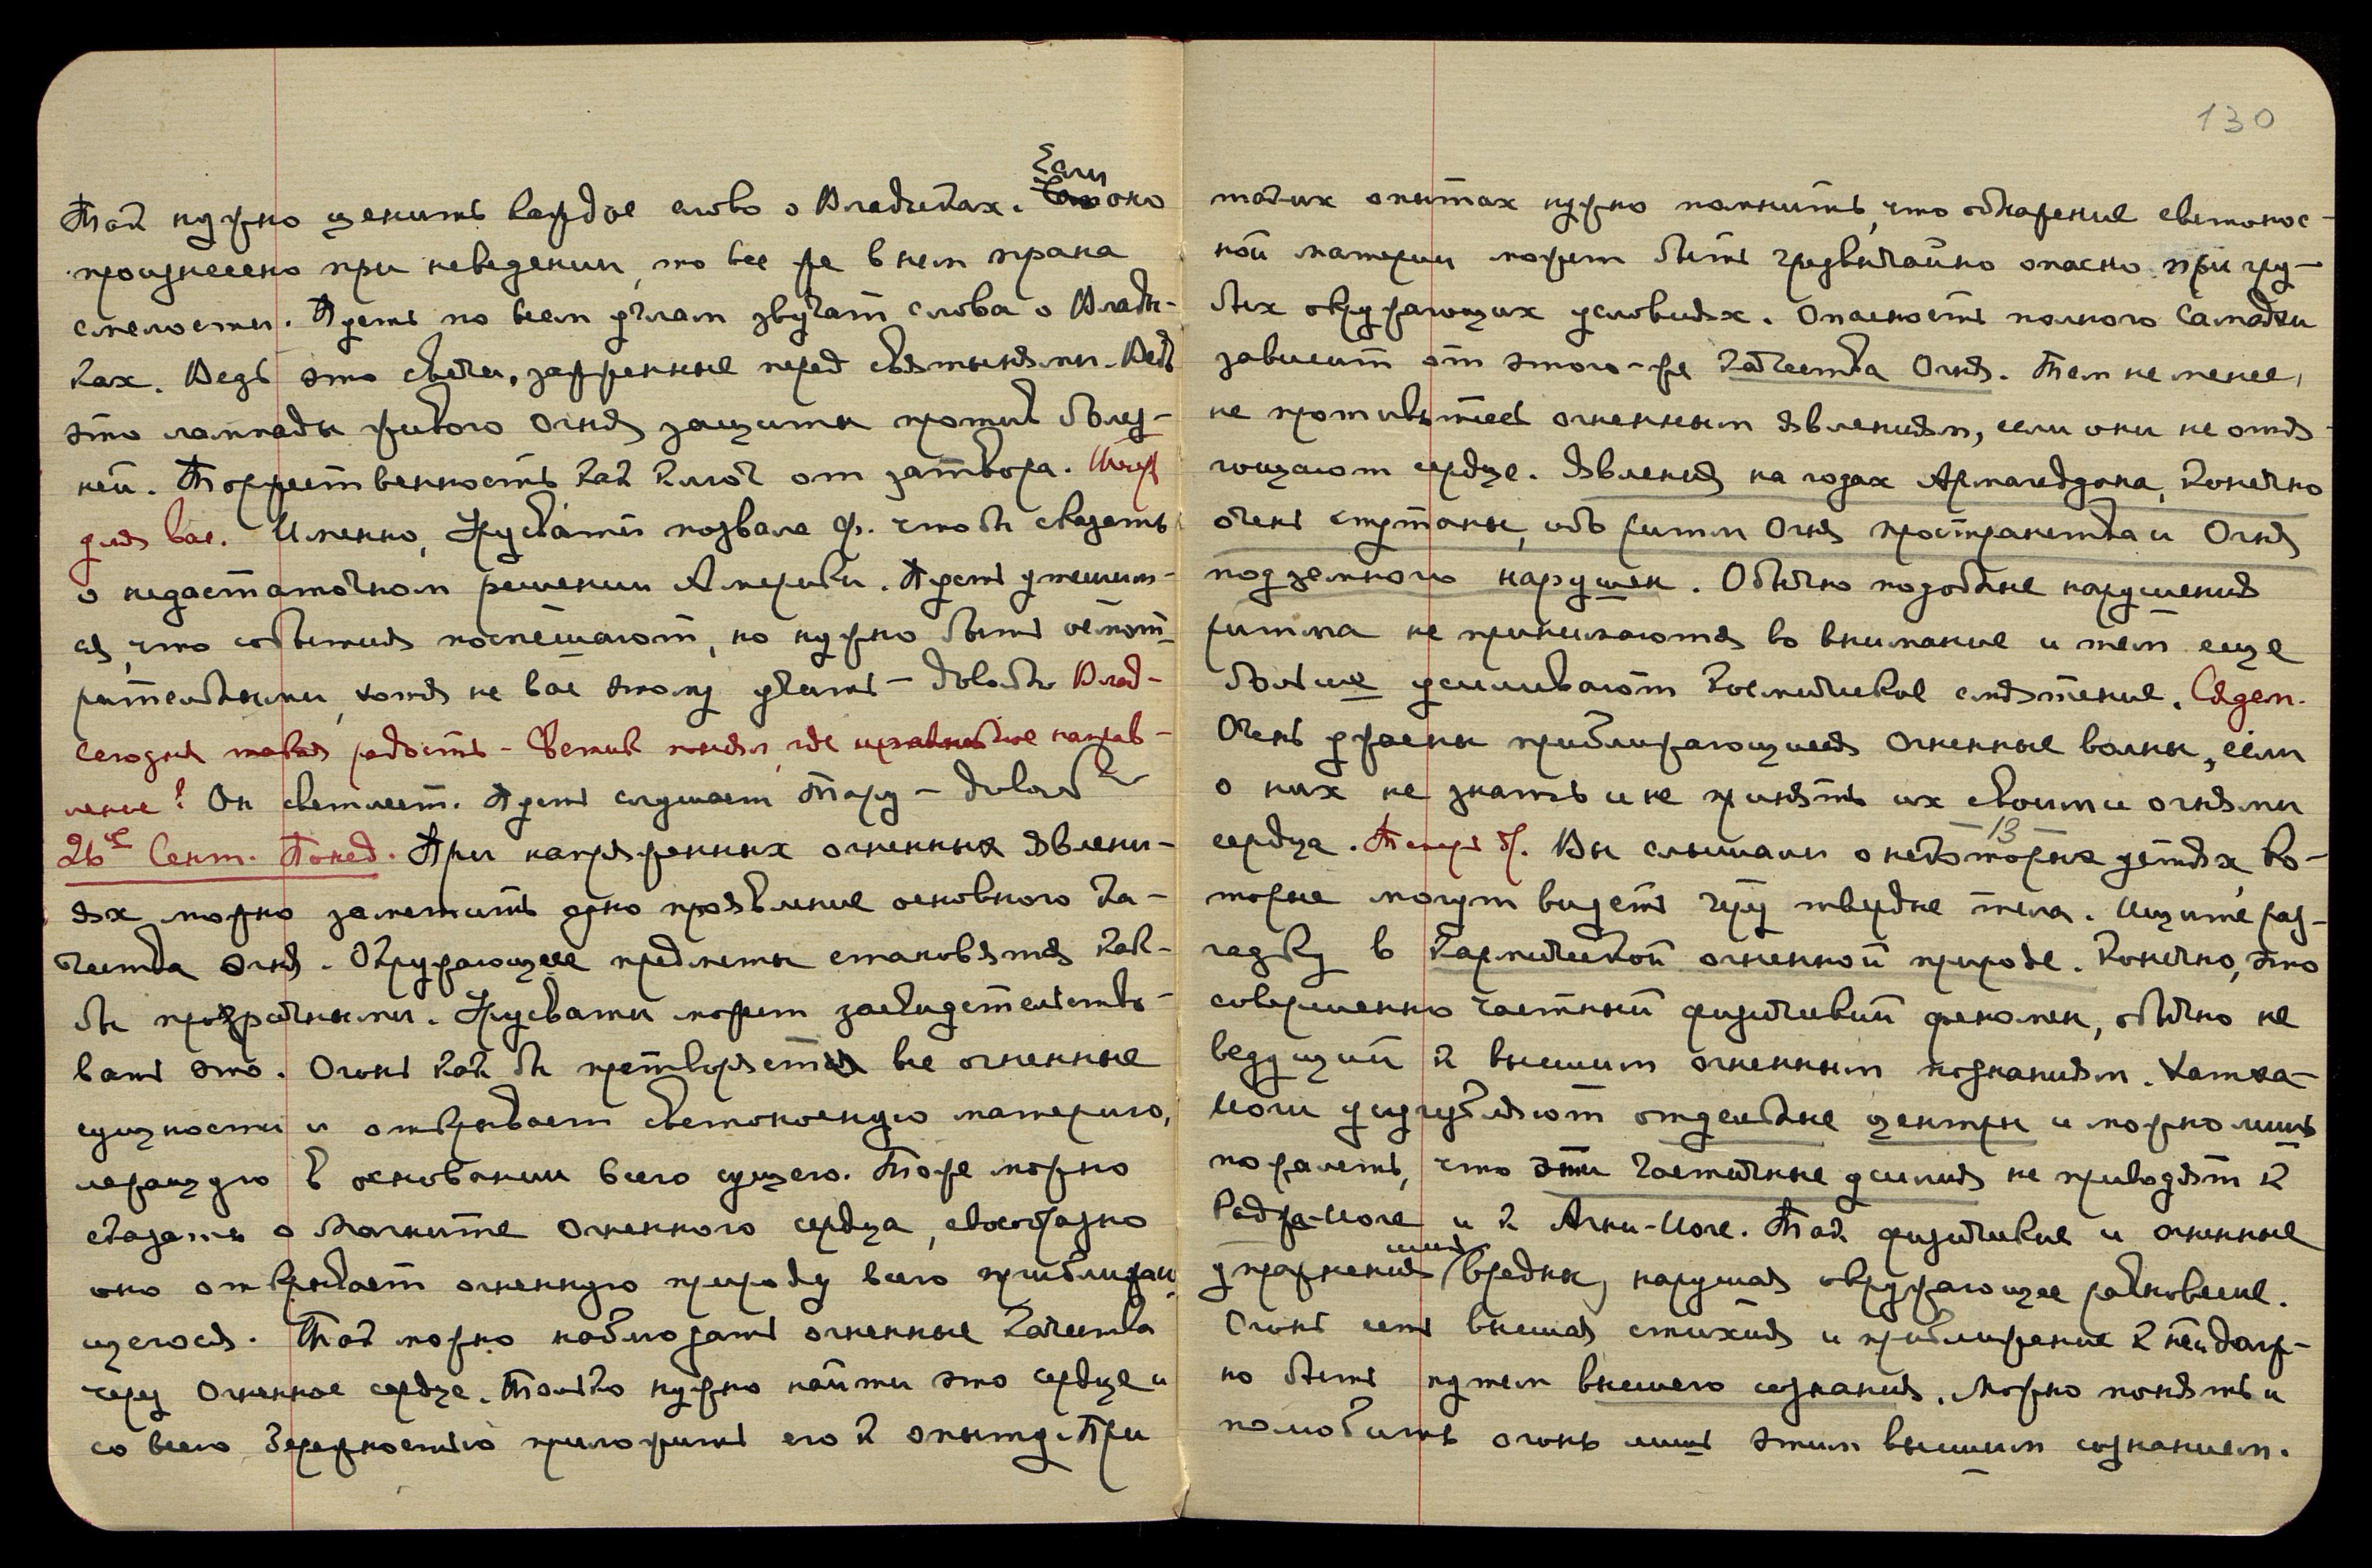 Так нужно ценить каждое слово о Владыках. Если оно
произнесено при неведении, то все же в нем прана
смелости. Пусть по всем углам звучат слова о Влады-
ках. Ведь это свечи, зажженные перед святынями. Ведь
это лампады живого Огня, защиты против болез-
ней. Торжественность как ключ от затвора.
для вас. Именно, Урусвати позвала Ф. чтобы сказать
о недостаточном решении Америки. Пусть утешит-
ся, что события поспешают, но нужно быть осмот-
рительными, хотя не вас этому учить – довольно Влад-
Сегодня такая радость – Светик понял, где правильное направ-
ление! Он светлеет. Пусть слушает Тару – довольно
26ое Сент. Понед. При напряженных огненных явлени-
ях можно заметить одно проявление основного ка-
чества огня. Окружающие предметы становятся как-
бы прозрачными. Урусвати может засвидетельство-
вать это. Огонь как бы претворяет все огненные
сущности и открывает светоносную материю,
лежащую в основании всего сущего. Тоже можно
сказать о Магните Огненного сердца, своеобразно
оно открывает огненную природу всего приближаю-
щегося. Так можно наблюдать огненные качества
через Огненное сердце. Только нужно найти это сердце и
со всею бережностью приложить его к опыту. При
130
таких опытах нужно помнить, что обнажение светонос-
ной материи может быть чрезвычайно опасно при гру-
бых окружающих условиях. Опасность полного Самадхи
зависит от этого-же качества Огня. Тем не менее,
не противьтесь огненным явлениям, если они не отя-
гощают сердце. Явления на годах Армагеддона, конечно
очень смутны, ибо ритм Огня пространства и Огня
подземного нарушен. Обычно подобные нарушения
ритма не принимаются во внимание и тем еще
больше усиливают космическое смятение. Сядем.
Очень ужасны приближающиеся огненные волны, если
о них не знать и не принять их своими огнями
сердца. Вы слышали о некоторых детях, ко-
13
торые могут видеть через твердые тела. Ищите раз-
гадку в кармической огненной природе. Конечно, это
совершенно частный физический феномен, обычно не
ведущий к высшим огненным познаниям. Хатха-
Йоги усугубляют отдельные центры и можно лишь
пожалеть, что эти частичные усилия не приводят к
Раджа-Йоге и к Агни-Йоге. Так физические и огненные
упражнения вредны, нарушая окружающее равновесие.
Огонь есть высшая стихия и приближение к ней долж-
но быть путем высшего сознания. Можно понять и
полюбить огонь лишь этим высшим сознанием.